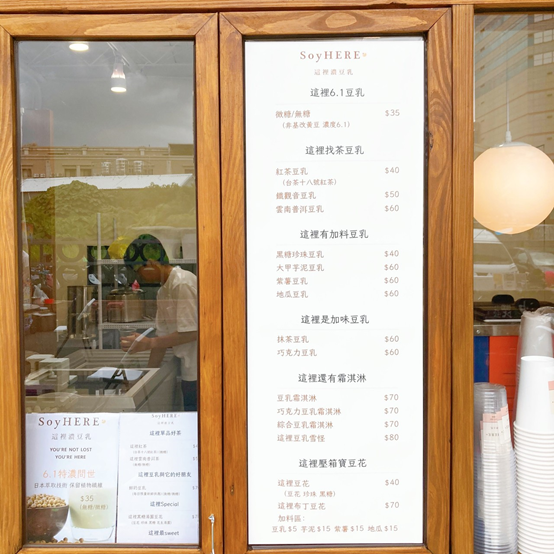 SoyHERE
這裡濃豆乳
這裡6.1豆乳
微糖/無糖 $35
(非基改黃豆 濃度6.1)
這裡找茶豆乳
紅茶豆乳 $40
(台茶十八號紅茶)
鐵觀音豆乳 $50
雲南普洱豆乳 $60
這裡有加料豆乳
黑糖珍珠豆乳 $40
大甲芋泥豆乳 $60
紫薯豆乳 $60
地瓜豆乳 $60
這裡是加味豆乳
抹茶豆乳 $60
巧克力豆乳 $60
這裡還有霜淇淋
豆乳霜淇淋 $70
巧克力豆乳霜淇淋 $70
綜合豆乳霜淇淋 $70
這裡豆乳雪恠 $80
這裡壓箱寶豆花
這裡豆花 $40
(豆花 珍珠 黑糖)
這裡布丁豆花 $70
加料區:
豆乳$5 芋泥$15 紫薯$15 地瓜$15
SoyHERE
這裡濃豆乳
YOU'RE NOT LOST
YOU'RE HERE
6.1特濃問世
日本萃取技術·保留植物纖維
$35
SoyHERE
這裡單品好茶
這裡豆乳與它的好朋友
這裡Special
這裡最sweet